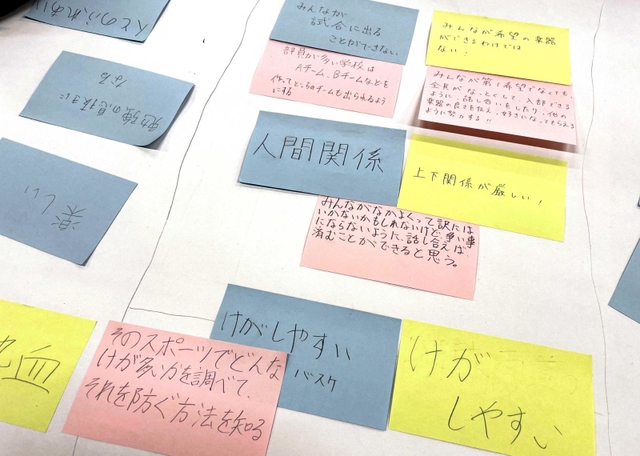 人とのふれあい
勉強の息抜きに
なる
楽しい
みんなが
試合に出る
ことができない
部員が多い学校は
Aチーム、Bチームなどを
作ってどちらのチームも出られるよう
にする
みんなが希望の楽器
ができるわけでは
ない!
みんなが第1希望でなくても、
全員が なっとくして、入部できる
ように 話し合いをしたり、他の
楽器の良さを伝え、好きになってもらえる
ように努力する!!
人間関係
上下関係が厳しい!
みんながなかよくって訳には
いかないかもしれないけど、争い事
にならないように、話し合えば
済むことができると思う。
けがしやすい
バスケ
けが
しやすい
そのスポーツでどんな
けが多いかを調べて、
それを防ぐ方法を知る
血